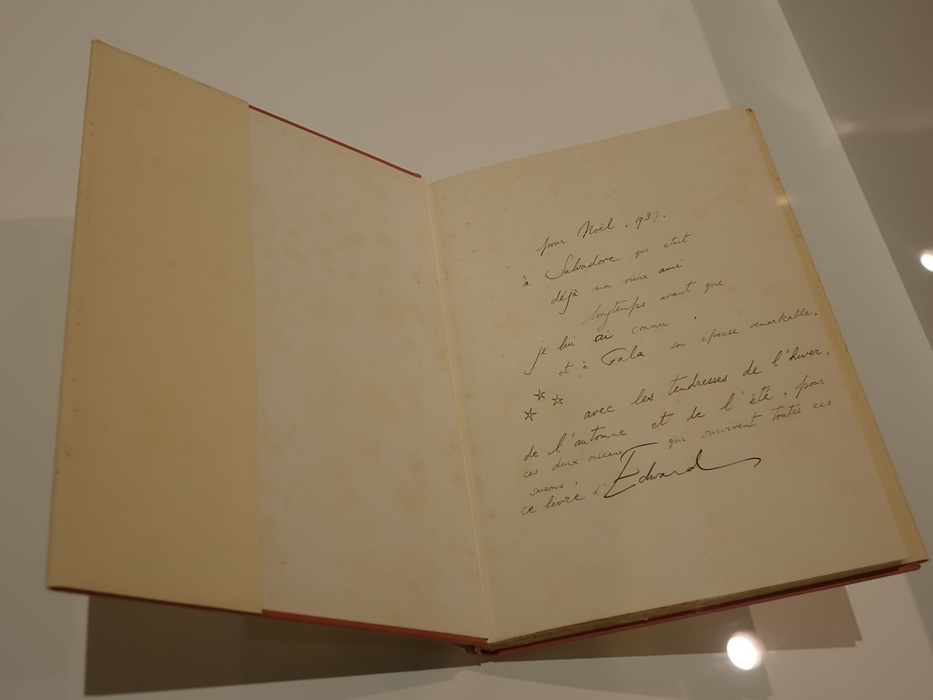 pour Noël, 1937.
à Salvadore que était
déjà mon vieux ami
longtemps avant que
je lui ai connu,
et à Gala son épouse remarkable,
avec les tendresses de l'hiver,
de l'automne et de l'été, pour
ces deux oiseaux qui survivent toutes ces
saisons,
ce livre d'Edward